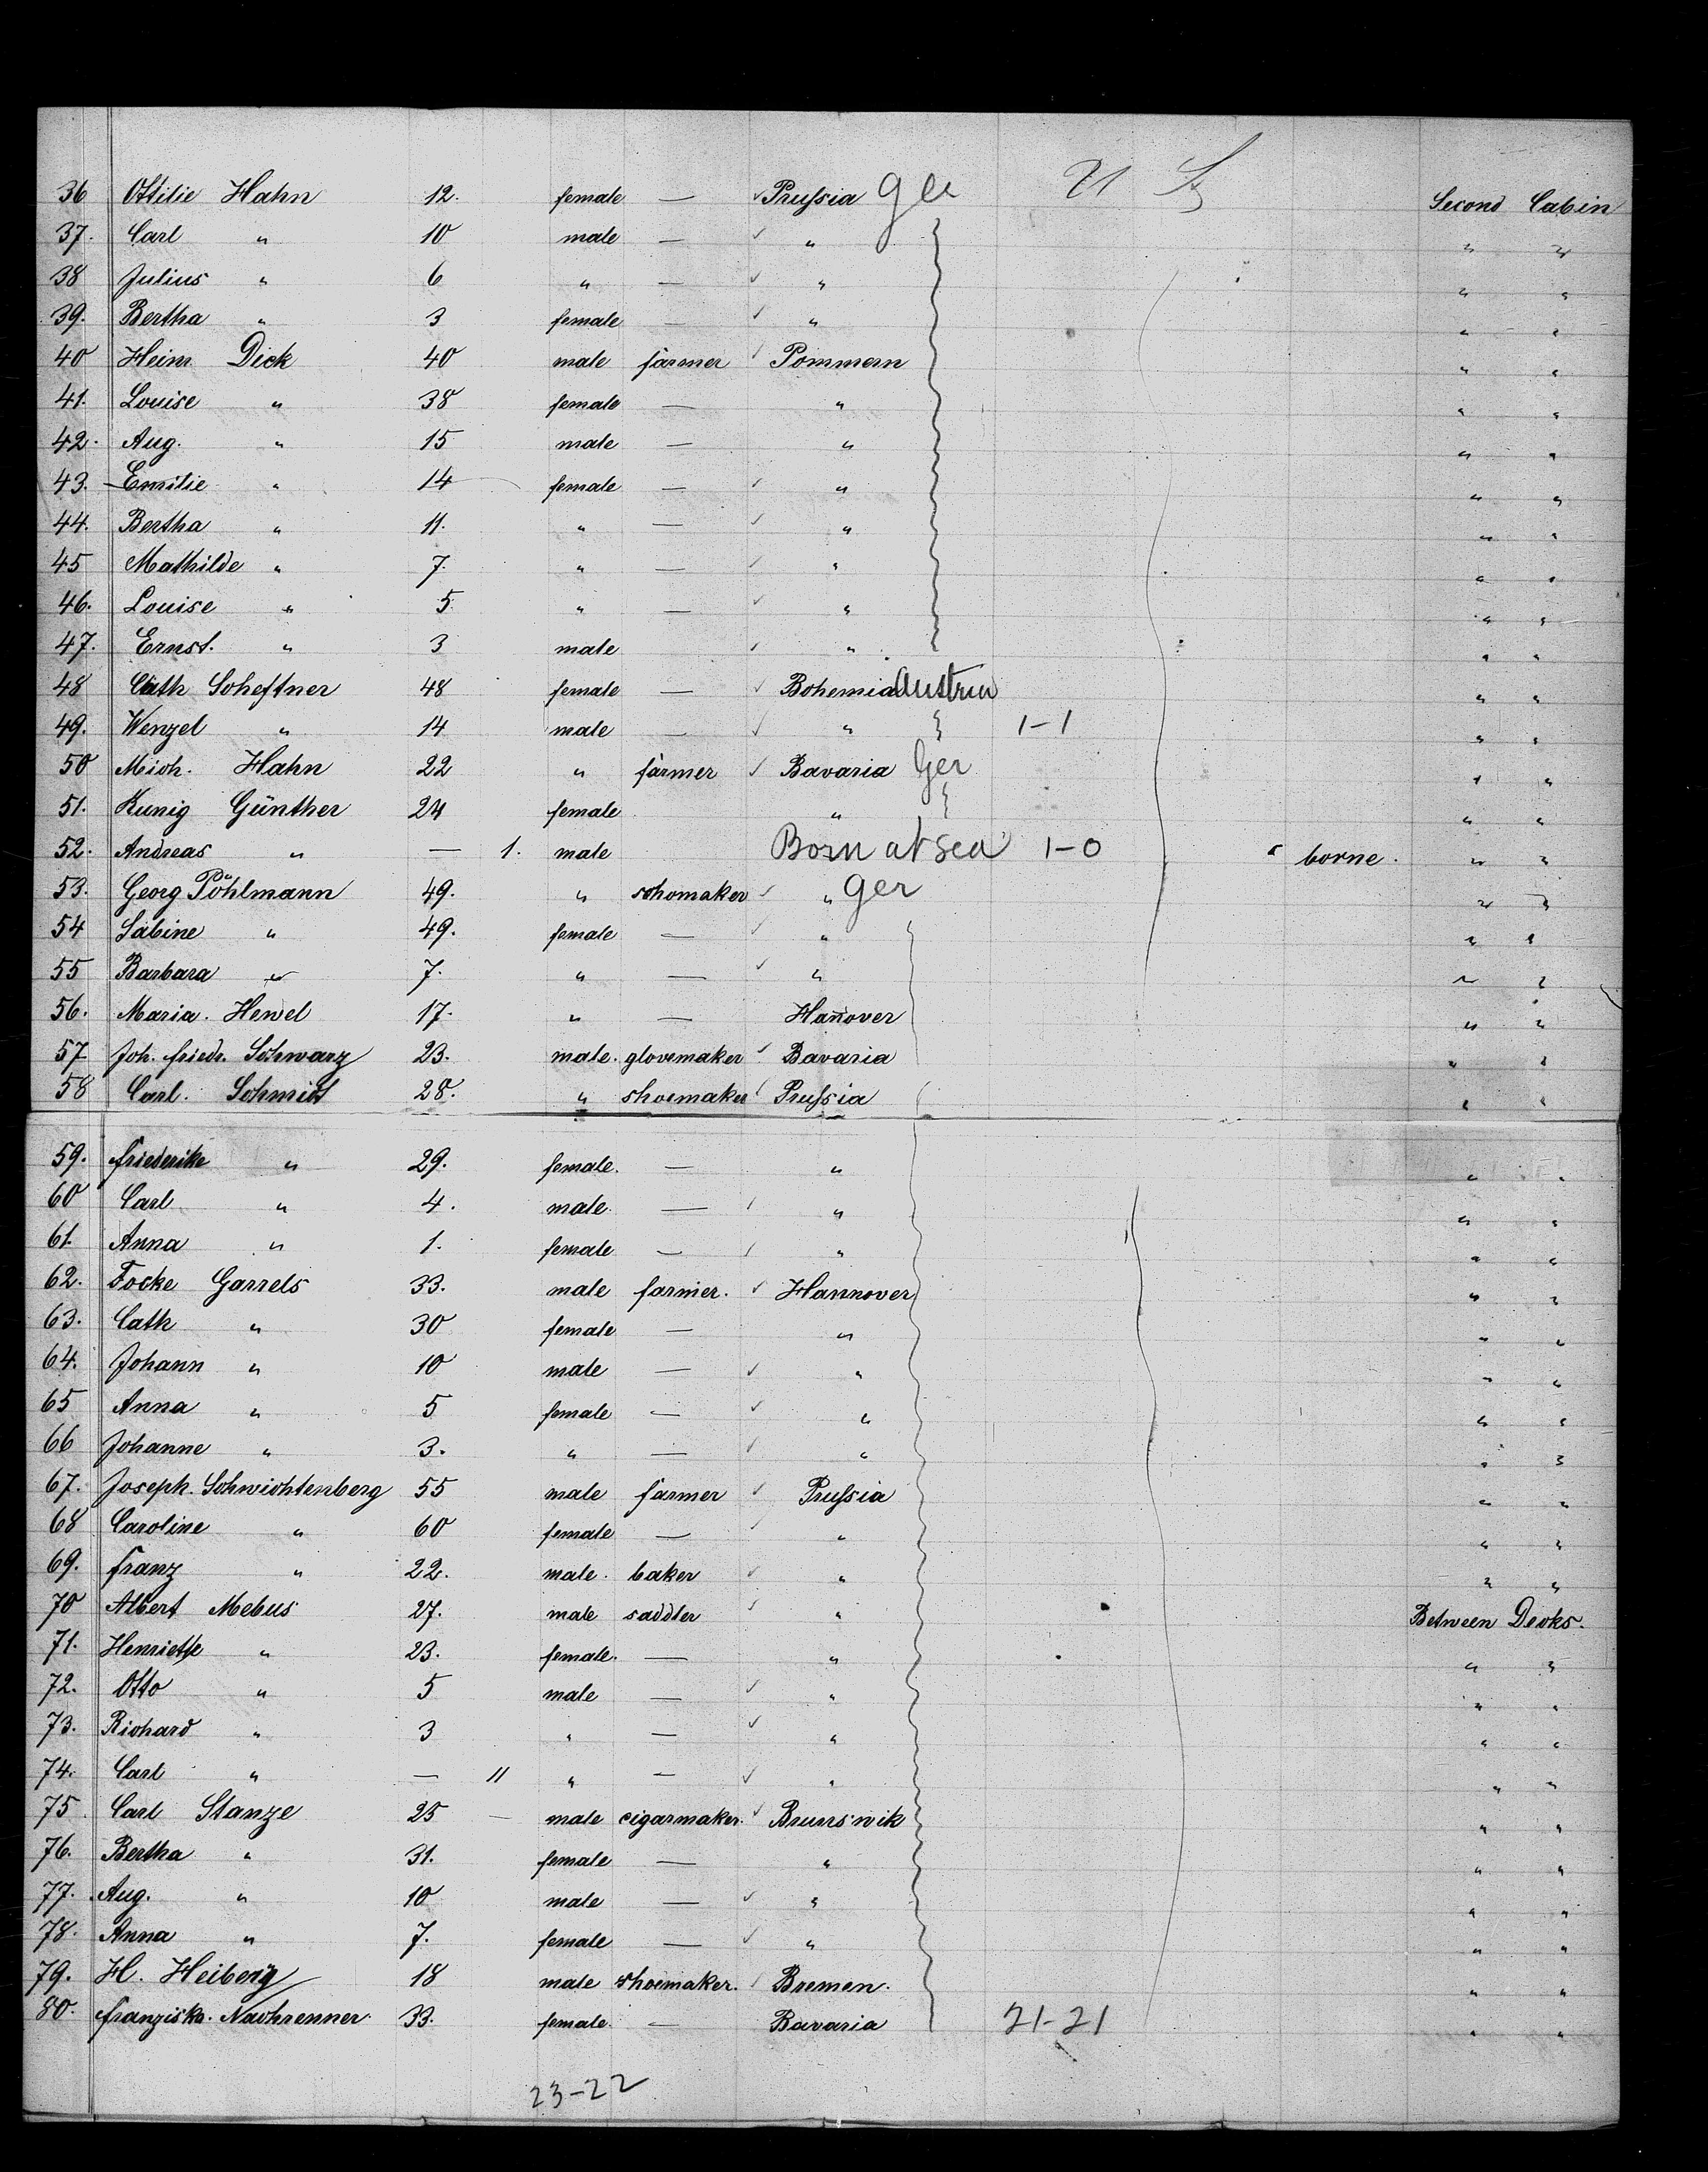 36 Ottilie Hahn 12. female — ✓ Prussia Ger U S Second Cabin
37. Carl " 10 male — ✓ " " "
38 Julius " 6 " — ✓ " " "
39. Bertha " 3 female — ✓ " " "
40 Heinr. Dick 40 male farmer ✓ Pommern " "
41. Louise " 38 female — " " "
42. Aug. " 15 male — " " "
43. Emilie " 14 female — ✓ " " "
44. Bertha " 11. " — ✓ " " "
45 Mathilde " 7. " — ✓ " " "
46. Louise " 5 " — ✓ " " "
47. Ernst. " 3 male ✓ " " "
48 Cath Scheftner 48 female — ✓ Bohemia Austria " "
49. Wenzel " 14 male — ✓ " 1-1 " "
50 Mich. Hahn 22 " farmer ✓ Bavaria Ger " "
51. Kunig Günther 24 female " " "
52. Andreas " — 1. male Born at sea 1-0 " borne. " "
53. Georg Pöhlmann 49. " schomaker ✓ " Ger " "
54 Sabine " 49. female — ✓ " " "
55 Barbara " 7. " — ✓ " " "
56. Maria. Hewel 17. " — Hañover " "
57 Joh. friedr. Schwarz 23. male. glovemaker ✓ Bavaria " "
58 Carl. Schmidt 28. " shoemaker ✓ Prussia " "
59. friederike " 29. female. — " " "
60 Carl " 4. male. — ✓ " " "
61. Anna " 1. female — ✓ " " "
62. Focke Garrels 33. male farmer. ✓ Hannover " "
63. Cath " 30 female — " " "
64. Johann " 10 male — ✓ " " "
65 Anna " 5 female — ✓ " " "
66 Johanne " 3. " — ✓ " " "
67. Joseph. Schwichtenberg 55 male farmer ✓ Prussia " "
68 Caroline " 60 female — ✓ " " "
69. franz " 22. male. baker ✓ " " "
70 Albert Mebus 27. male saddler ✓ " Between Decks.
71. Henriette " 23. female. — " " "
72. Otto " 5 male — ✓ " " "
73. Richard " 3 " — ✓ " " "
74. Carl " — 11 " — ✓ " " "
75 Carl Stanze 25 — male cigarmaker. ✓ Brunswik " "
76. Bertha " 31. female — " " "
77. Aug. " 10 male — ✓ " " "
78. Anna " 7. female — ✓ " " "
79. H. Heiberg 18 male shoemaker. ✓ Bremen. " "
80. franziska. Nachrenner 33. female. — Bavaria 21-21 " "
23-22